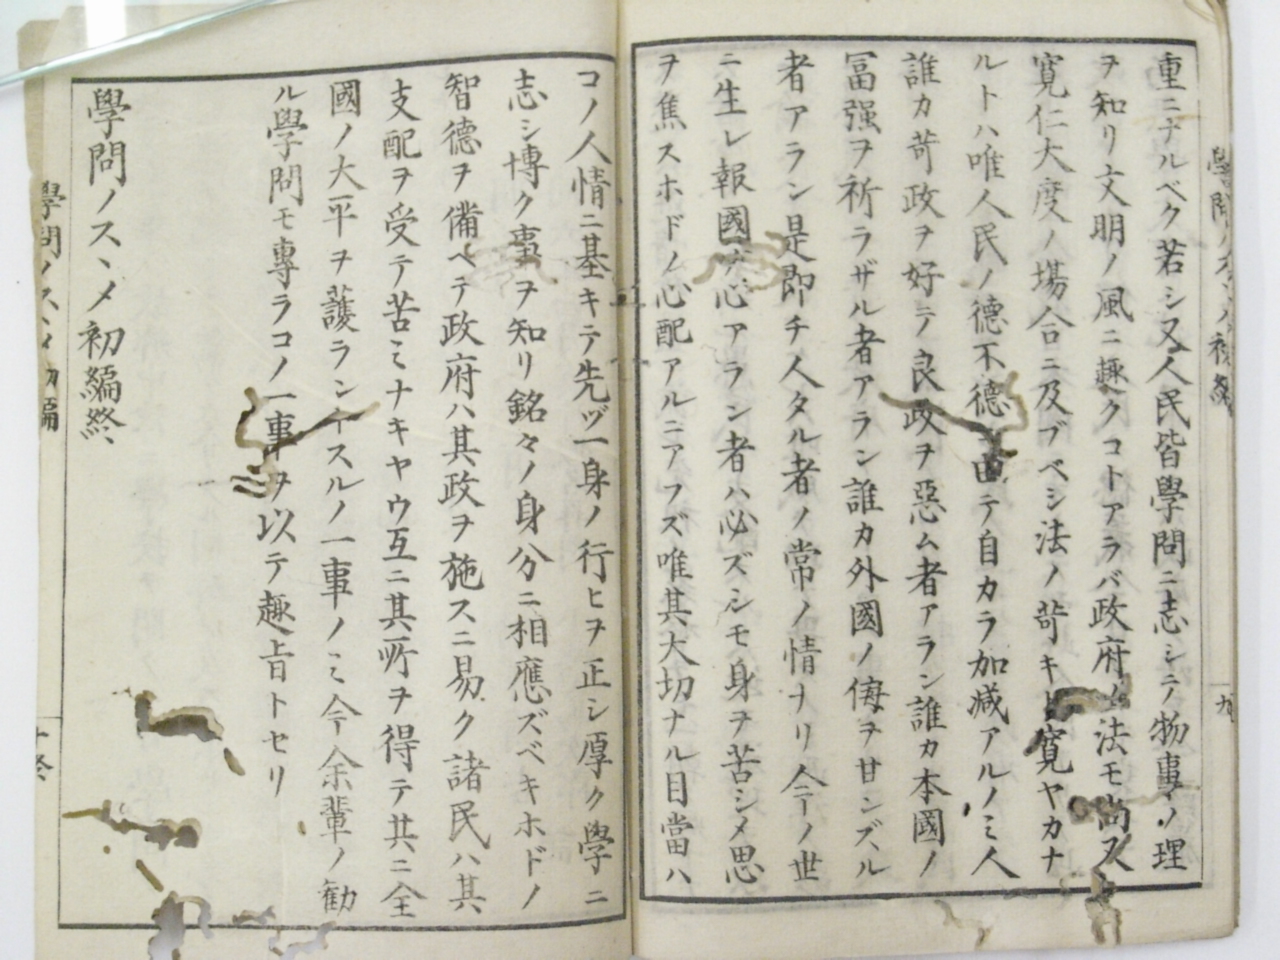 重ニナルベク若シ又人民皆學問ニ志シテ物事ノ理
ヲ知リ文明ノ風ニ趣クコトアラバ政府ノ法モ尚又
寛仁大度ノ場合ニ及ブベシ法ノ苛キト寛ヤカナ
ルトハ唯人民ノ德不德ニ由テ自カラ加減アルノミ人
誰カ苛政ヲ好テ良政ヲ惡ム者アラン誰カ本國ノ
冨强ヲ祈ラザル者アラン誰カ外國ノ侮ヲ甘ンズル
者アラン是即チ人タル者ノ常ノ情ナリ今ノ世
ニ生レ報國ノ心アラン者ハ必ズシモ身ヲ苦シメ思
ヲ焦スホドノ心配アルニアラズ唯其大切ナル目當ハ
コノ人情ニ基キテ先ヅ一身ノ行ヒヲ正シ厚ク學ニ
志シ博ク事ヲ知リ銘々ノ身分ニ相應ズベキホドノ
智德ヲ備ヘテ政府ハ其政ヲ施スニ易ク諸民ハ其
支配ヲ受テ苦ミナキヤウ互ニ其所ヲ得テ共ニ全
國ノ大平ヲ護ラントスルノ一事ノミ今余輩ノ勸
ル學問モ專ラコノ一事ヲ以テ趣旨トセリ
學問ノスヽメ初編終
學問ノスヽメ初編